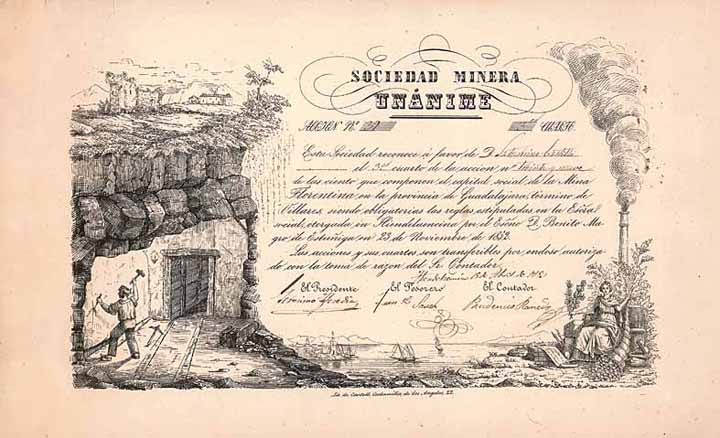 SOCIEDAD MINERA
UNÁNIME
ACCION Nº 39 3er CUARTO.
Esta Sociedad reconoce á favor de D.
el 3er cuarto de la accion nº treinta y nueve
de las ciento que componen el capital social de la Mina
Florentina en la provincia de Guadalajara, término de
Villares siendo obligatorias las reglas estipuladas en la Escra
social, otorgada en Hiendelaencina por el Escno D. Benito Ma-
gro de Estúñiga en 23 de Noviembre de 1852.
Las acciones y sus cuartos son transferibles por endoso autoriza-
do con la toma de razon del Sr. Contador.
Hiendelaencina de de
El Presidente El Tesorero El Contador
Juan Prudencio
Lit. de Castell, Costanilla de los Angeles, 22.